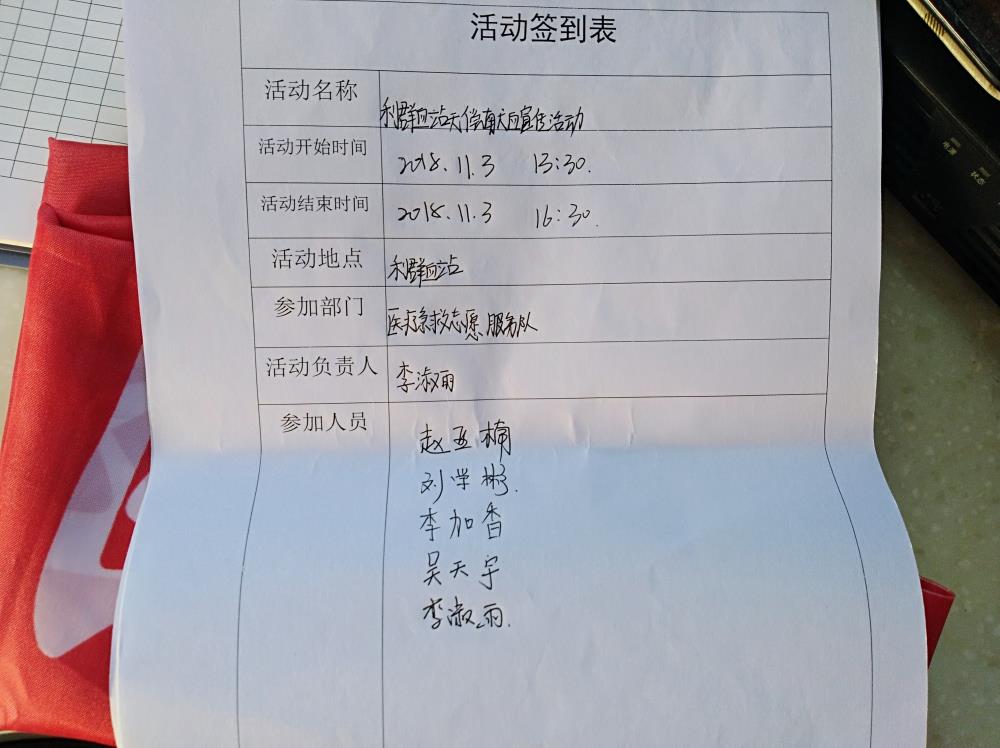 活动签到表
活动名称 利群回站无偿献血宣传活动
活动开始时间 2018.11.3 13:30.
活动结束时间 2018.11.3 16:30.
活动地点 利群回站
参加部门 医疗急救志愿服务队
活动负责人 李淑丽
参加人员 赵亚楠
刘学彬.
李加香
吴天宇
李淑丽.
电源
状态